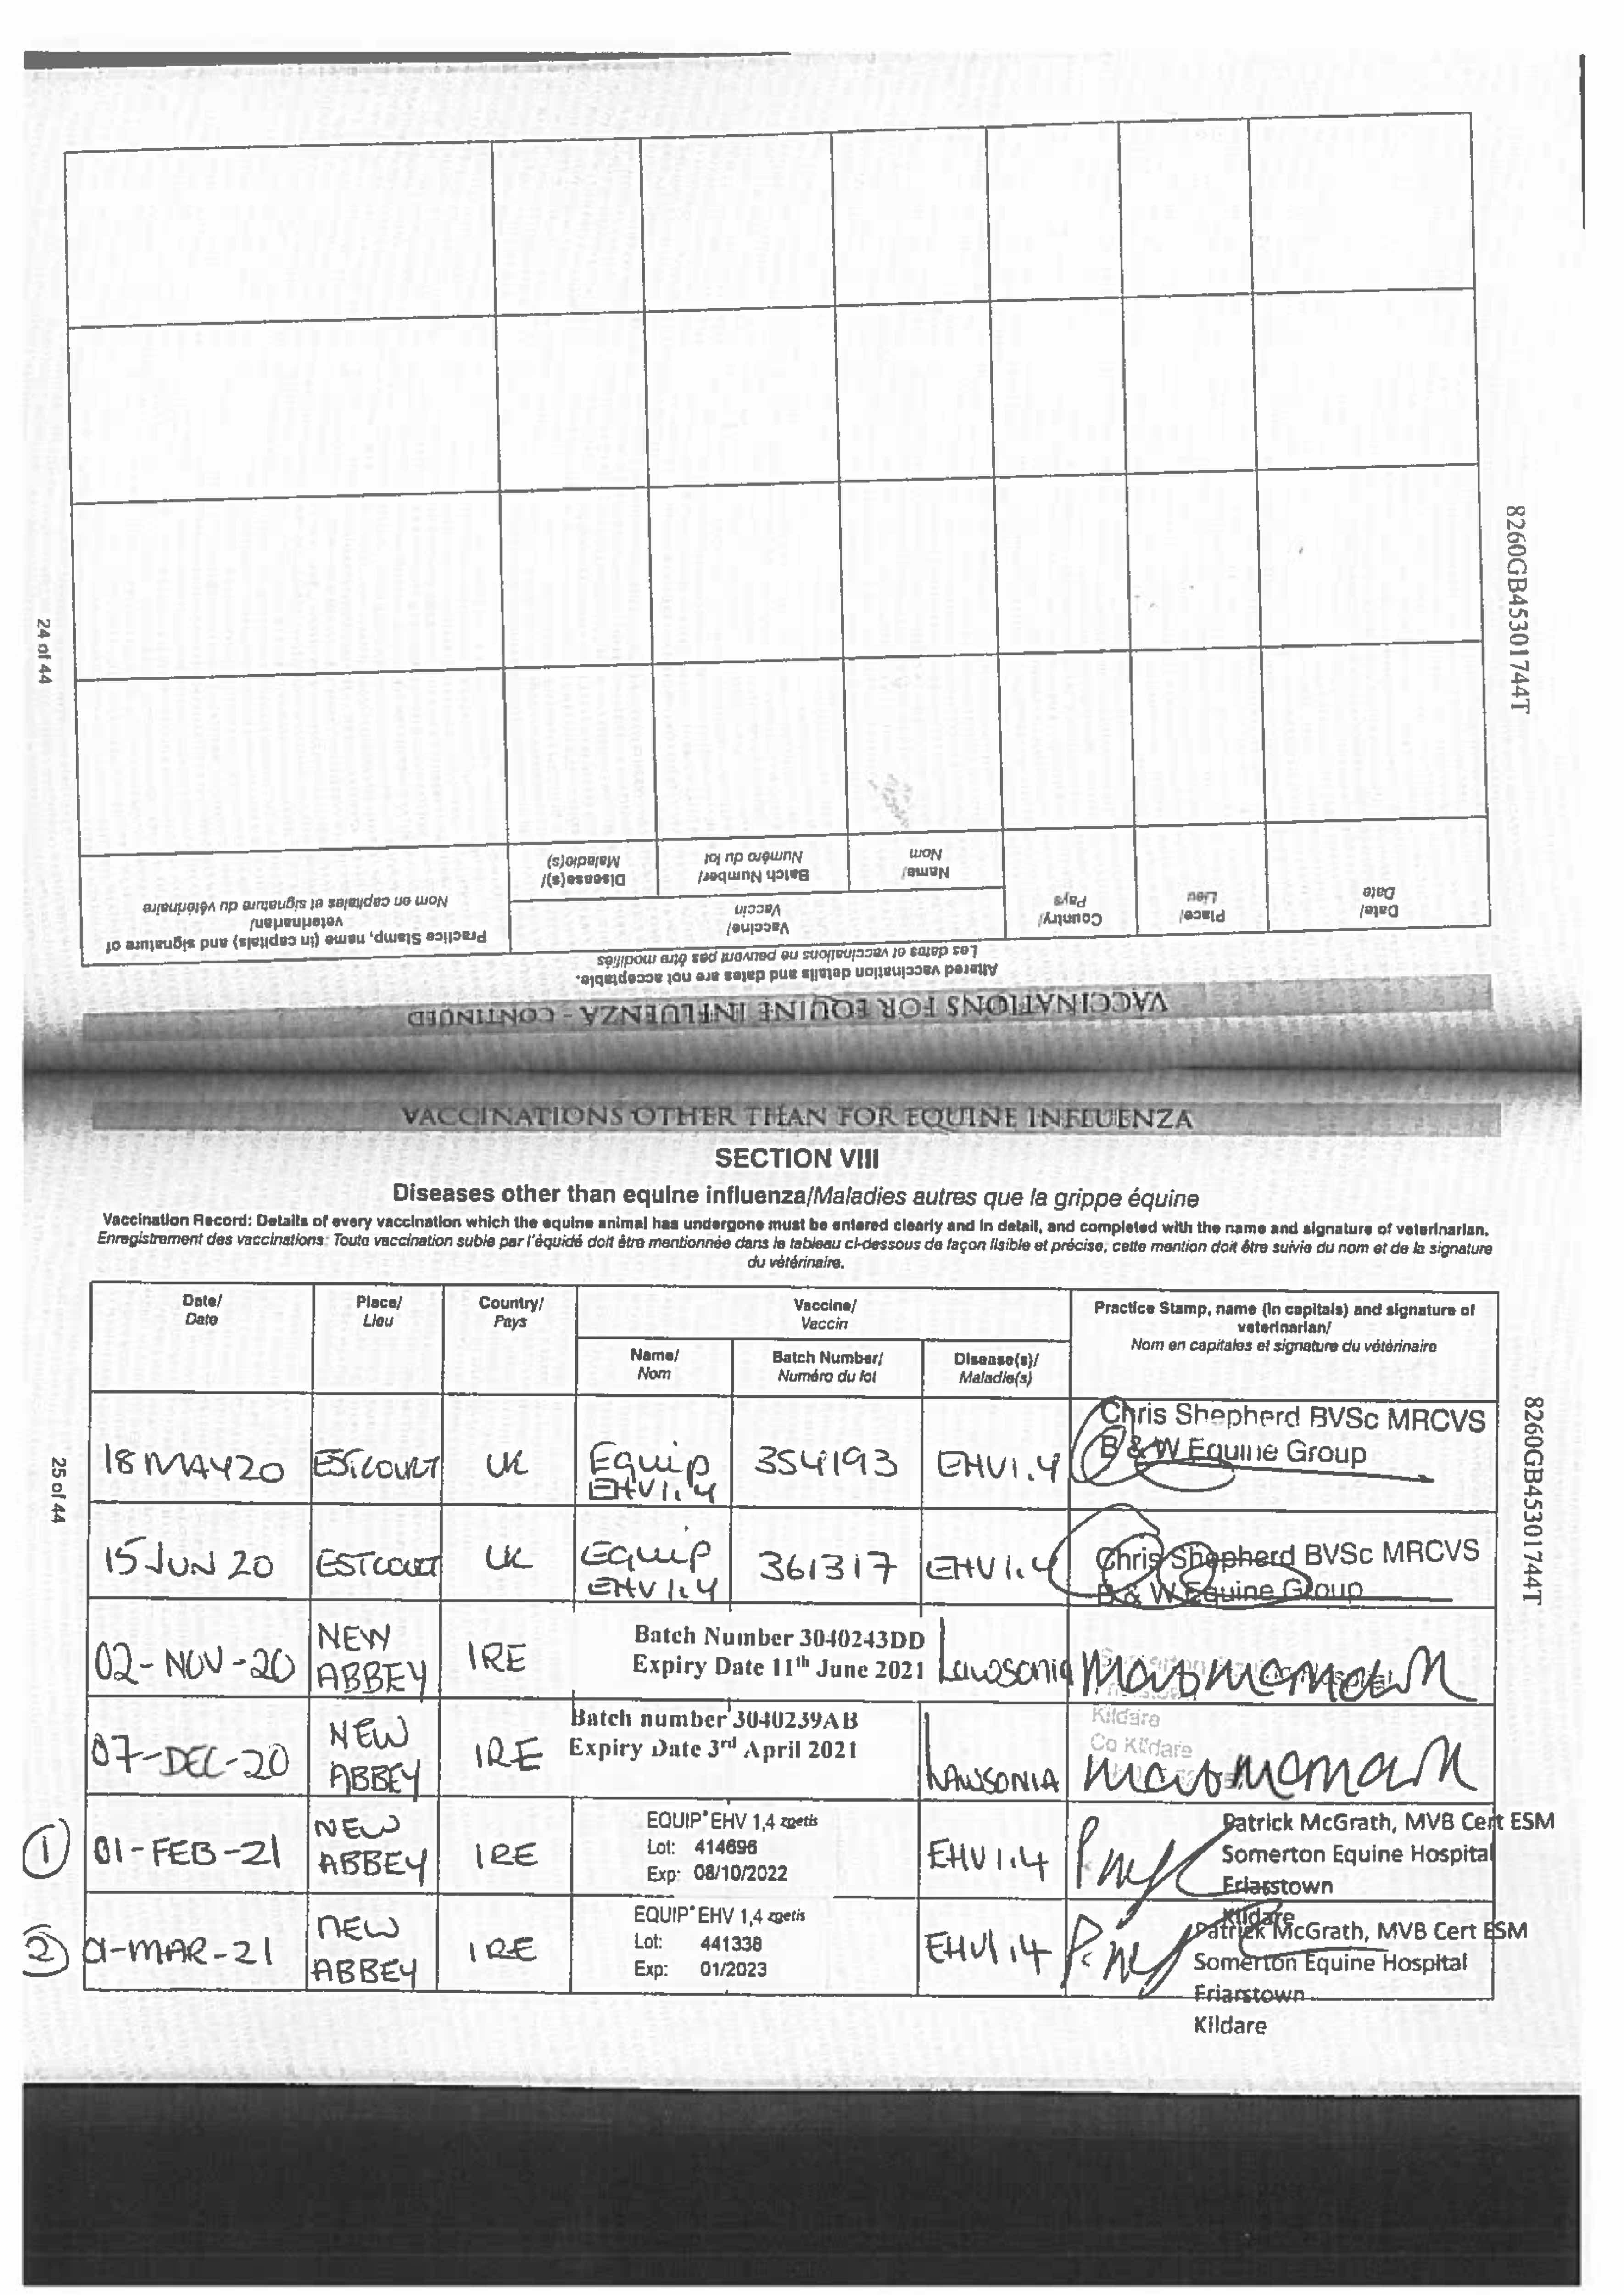 8260GB45301744T
24 of 44
VACCINATIONS FOR EQUINE INFLUENZA - CONTINUED
Altered vaccination details and dates are not acceptable.
Les dates et vaccinations ne peuvent pas être modifiés
Date/
Date
Place/
Lieu
Country/
Pays
Vaccine/
Vaccin
Name/
Nom
Batch Number/
Numéro du lot
Disease(s)/
Maladie(s)
Practice Stamp, name (in capitals) and signature of
veterinarian/
Nom en capitales et signature du vétérinaire
VACCINATIONS OTHER THAN FOR EQUINE INFLUENZA
SECTION VIII
Diseases other than equine influenza/Maladies autres que la grippe équine
Vaccination Record: Details of every vaccination which the equine animal has undergone must be entered clearly and in detail, and completed with the name and signature of veterinarian.
Enregistrement des vaccinations: Toute vaccination subie par l'équidé doit être mentionnée dans le tableau ci-dessous de façon lisible et précise; cette mention doit être suivie du nom et de la signature
du vétérinaire.
Date/
Date
Place/
Lieu
Country/
Pays
Vaccine/
Vaccin
Name/
Nom
Batch Number/
Numéro du lot
Disease(s)/
Maladie(s)
Practice Stamp, name (in capitals) and signature of
veterinarian/
Nom en capitales et signature du vétérinaire
18 MAY 20 ESTCOURT UK Equip 354193 EHV1.4 Chris Shepherd BVSc MRCVS
EHV1.4 B & W Equine Group
15 JUN 20 ESTCOURT UK Equip 361317 EHV1.4 Chris Shepherd BVSc MRCVS
EHV1.4 B & W Equine Group
02-NOV-20 NEW ABBEY IRE Batch Number 3040243DD Lawsonia
Expiry Date 11th June 2021
07-DEC-20 NEW ABBEY IRE Batch number 3040239AB LAWSONIA Kildare
Expiry Date 3rd April 2021 Co Kildare
1 01-FEB-21 NEW ABBEY IRE EQUIP EHV 1,4 zoetis EHV1.4 Patrick McGrath, MVB Cert ESM
Lot: 414696 Somerton Equine Hospital
Exp: 08/10/2022 Friarstown
Kildare
2 01-MAR-21 NEW ABBEY IRE EQUIP EHV 1,4 zoetis EHV1.4 Patrick McGrath, MVB Cert ESM
Lot: 441338 Somerton Equine Hospital
Exp: 01/2023 Friarstown
Kildare
25 of 44
8260GB45301744T